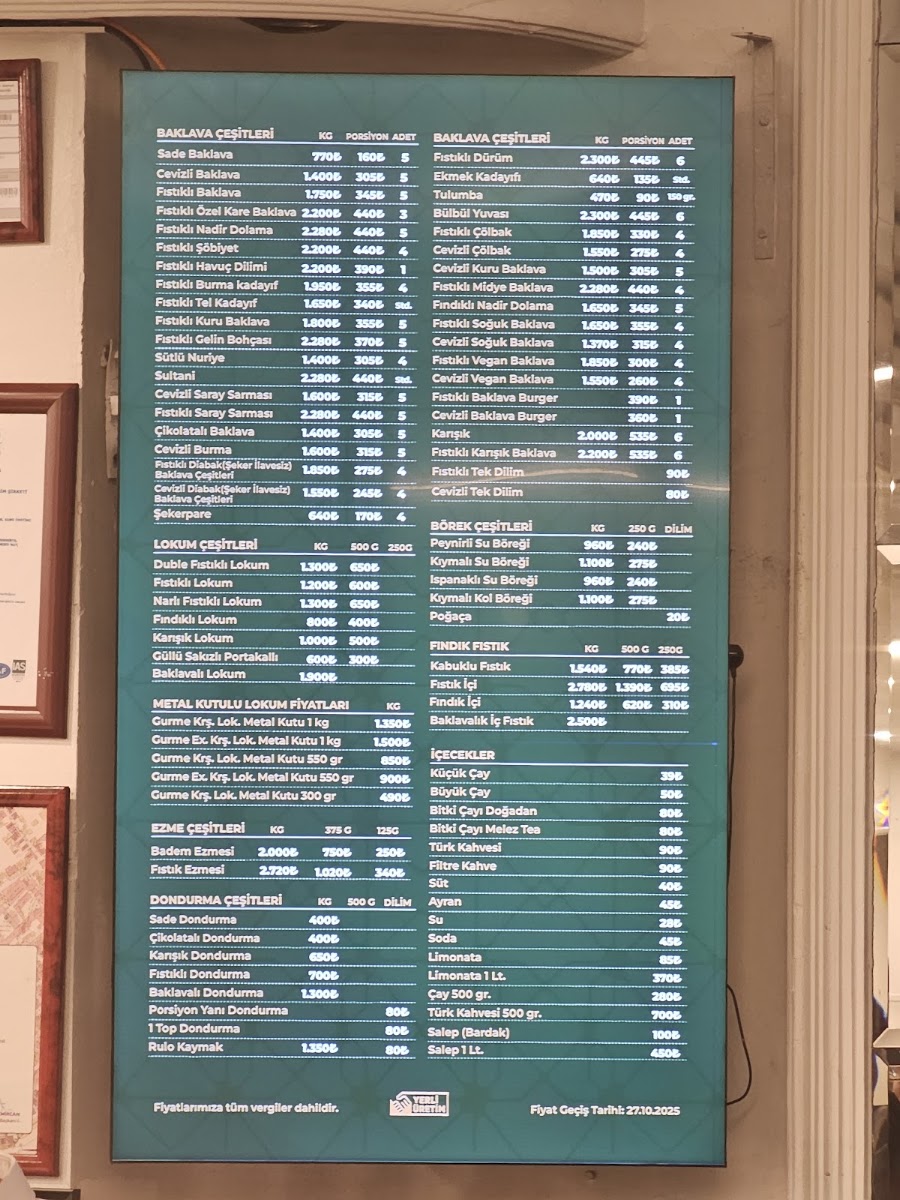 BAKLAVA ÇEŞİTLERİ KG PORSİYON ADET
Sade Baklava 770₺ 160₺ 5
Cevizli Baklava 1.400₺ 305₺ 5
Fıstıklı Baklava 1.750₺ 345₺ 5
Fıstıklı Özel Kare Baklava 2.200₺ 440₺ 3
Fıstıklı Nadir Dolama 2.280₺ 440₺ 5
Fıstıklı Şöbiyet 2.200₺ 440₺ 4
Fıstıklı Havuç Dilimi 2.200₺ 390₺ 1
Fıstıklı Burma kadayıf 1.950₺ 355₺ 4
Fıstıklı Tel Kadayıf 1.650₺ 340₺ Std.
Fıstıklı Kuru Baklava 1.800₺ 355₺ 5
Fıstıklı Gelin Bohçası 2.280₺ 370₺ 5
Sütlü Nuriye 1.400₺ 305₺ 4
Sultani 2.280₺ 440₺ Std.
Cevizli Saray Sarması 1.600₺ 315₺ 5
Fıstıklı Saray Sarması 2.280₺ 440₺ 5
Çikolatalı Baklava 1.400₺ 305₺ 5
Cevizli Burma 1.600₺ 315₺ 5
Fıstıklı Diabak(Şeker İlavesiz)
Baklava Çeşitleri 1.850₺ 275₺ 4
Cevizli Diabak(Şeker İlavesiz)
Baklava Çeşitleri 1.550₺ 245₺ 4
Şekerpare 640₺ 170₺ 4
LOKUM ÇEŞİTLERİ KG 500 G 250G
Duble Fıstıklı Lokum 1.300₺ 650₺
Fıstıklı Lokum 1.200₺ 600₺
Narlı Fıstıklı Lokum 1.300₺ 650₺
Fındıklı Lokum 800₺ 400₺
Karışık Lokum 1.000₺ 500₺
Güllü Sakızlı Portakallı 600₺ 300₺
Baklavalı Lokum 1.900₺
METAL KUTULU LOKUM FİYATLARI KG
Gurme Krş. Lok. Metal Kutu 1 kg 1.350₺
Gurme Ex. Krş. Lok. Metal Kutu 1 kg 1.500₺
Gurme Krş. Lok. Metal Kutu 550 gr 850₺
Gurme Ex. Krş. Lok. Metal Kutu 550 gr 900₺
Gurme Krş. Lok. Metal Kutu 300 gr 490₺
EZME ÇEŞİTLERİ KG 375 G 125G
Badem Ezmesi 2.000₺ 750₺ 250₺
Fıstık Ezmesi 2.720₺ 1.020₺ 340₺
DONDURMA ÇEŞİTLERİ KG 500 G DİLİM
Sade Dondurma 400₺
Çikolatalı Dondurma 400₺
Karışık Dondurma 650₺
Fıstıklı Dondurma 700₺
Baklavalı Dondurma 1.300₺
Porsiyon Yanı Dondurma 80₺
1 Top Dondurma 80₺
Rulo Kaymak 1.350₺ 80₺
BAKLAVA ÇEŞİTLERİ KG PORSİYON ADET
Fıstıklı Dürüm 2.300₺ 445₺ 6
Ekmek Kadayıfı 640₺ 135₺ Std.
Tulumba 470₺ 90₺ 150 gr.
Bülbül Yuvası 2.300₺ 445₺ 6
Fıstıklı Çölbak 1.850₺ 330₺ 4
Cevizli Çölbak 1.550₺ 275₺ 4
Cevizli Kuru Baklava 1.500₺ 305₺ 5
Fıstıklı Midye Baklava 2.280₺ 440₺ 4
Fındıklı Nadir Dolama 1.650₺ 345₺ 5
Fıstıklı Soğuk Baklava 1.650₺ 355₺ 4
Cevizli Soğuk Baklava 1.370₺ 315₺ 4
Fıstıklı Vegan Baklava 1.850₺ 300₺ 4
Cevizli Vegan Baklava 1.550₺ 260₺ 4
Fıstıklı Baklava Burger 390₺ 1
Cevizli Baklava Burger 360₺ 1
Karışık 2.000₺ 535₺ 6
Fıstıklı Karışık Baklava 2.200₺ 535₺ 6
Fıstıklı Tek Dilim 90₺
Cevizli Tek Dilim 80₺
BÖREK ÇEŞİTLERİ KG 250 G DİLİM
Peynirli Su Böreği 960₺ 240₺
Kıymalı Su Böreği 1.100₺ 275₺
Ispanaklı Su Böreği 960₺ 240₺
Kıymalı Kol Böreği 1.100₺ 275₺
Poğaça 20₺
FINDIK FISTIK KG 500 G 250G
Kabuklu Fıstık 1.540₺ 770₺ 385₺
Fıstık İçi 2.780₺ 1.390₺ 695₺
Fındık İçi 1.240₺ 620₺ 310₺
Baklavalık İç Fıstık 2.500₺
İÇECEKLER
Küçük Çay 39₺
Büyük Çay 50₺
Bitki Çayı Doğadan 80₺
Bitki Çayı Melez Tea 80₺
Türk Kahvesi 90₺
Filtre Kahve 90₺
Süt 40₺
Ayran 45₺
Su 28₺
Soda 45₺
Limonata 85₺
Limonata 1 Lt. 370₺
Çay 500 gr. 280₺
Türk Kahvesi 500 gr. 700₺
Salep (Bardak) 100₺
Salep 1 Lt. 450₺
Fiyatlarımıza tüm vergiler dahildir.
YERLİ
ÜRETİM
Fiyat Geçiş Tarihi: 27.10.2025